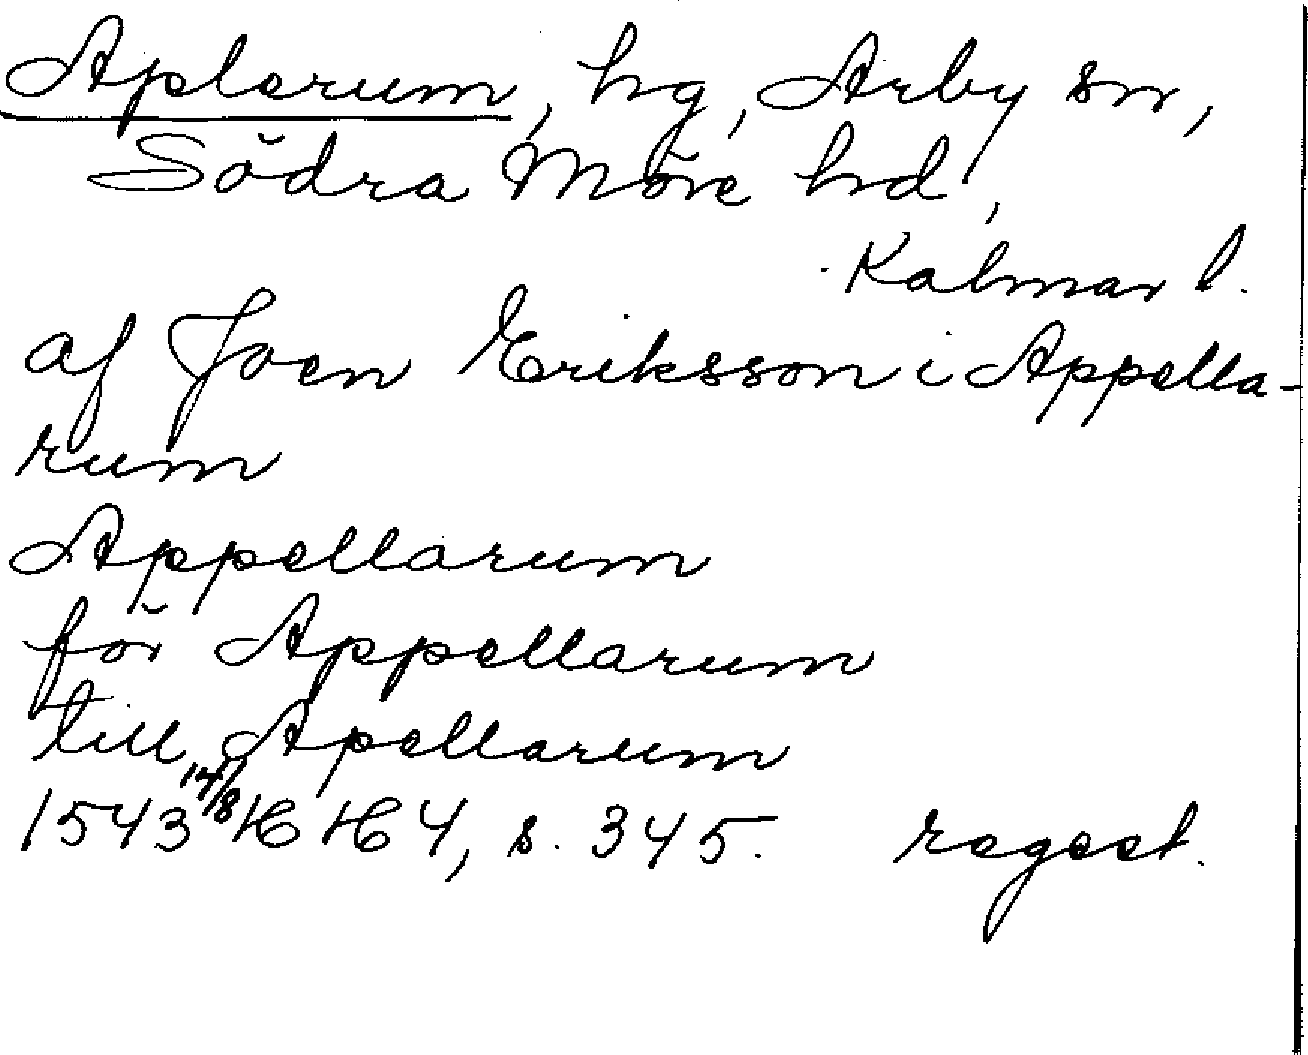 Aplerum, hg, Arby sn,
Södra Möre hd,
Kalmar l.
af Joen Eriksson i Appella-
rum
Appellarum
för Appellarum
till Apellarum
1543 14/8 HH 4, s. 345. regest.